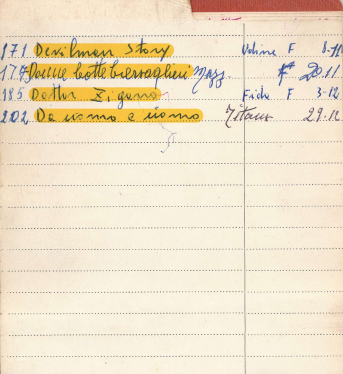 171 Devilman Story Udine F 8-11
177 Donne botte bersaglieri Mazz. F 20.11
185 Dottor Zigano Fida F 3-12
202 Da uomo a uomo Titanus 29.12